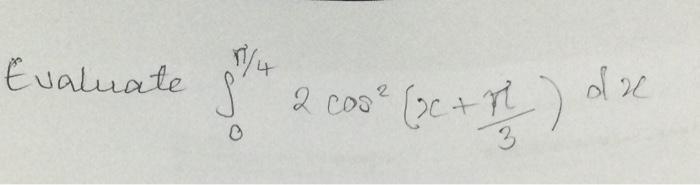 Evaluate ∫₀^{π/4} 2 cos² (x + π/3) dx